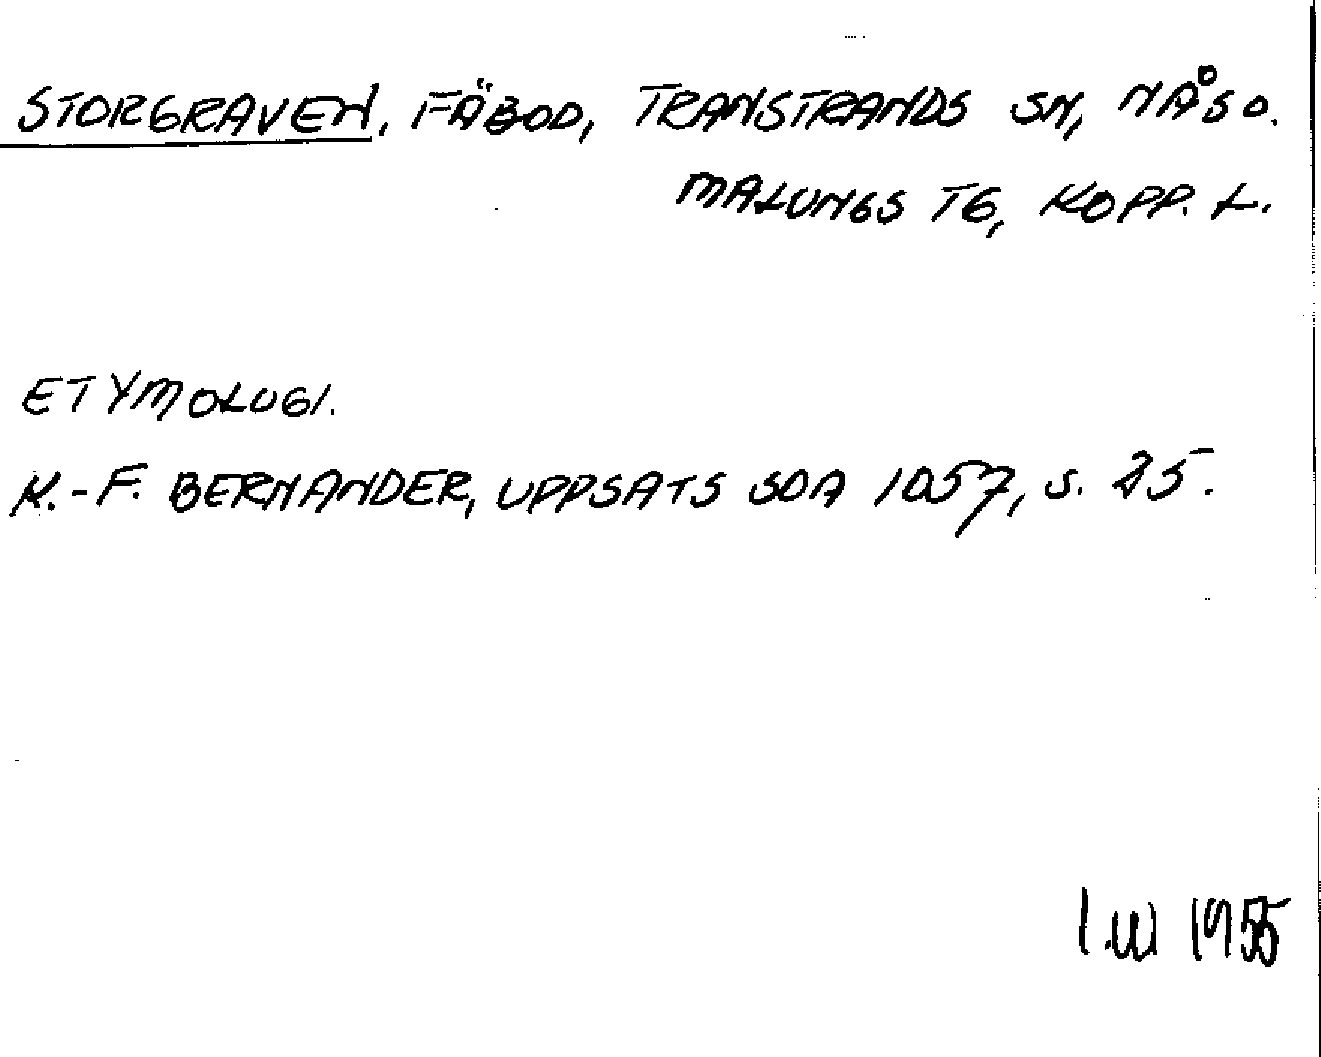 STORGRAVEN, FÄBOD, TRANSTRANDS SN, NÅS O.
MALUNGS TG, KOPP. L.
ETYMOLOGI.
K.-F. BERNANDER, UPPSATS SOA 1057, S. 25.
I.W 1955